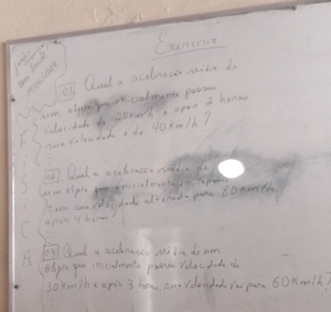 Exercício
01 Qual a aceleração média de
um objeto que inicialmente possui
velocidade de 20 km/h e após 2 horas
sua velocidade é de 40 Km/h?
02 Qual a aceleração média de
um objeto que inicialmente em repouso
tem sua velocidade alterada para 80 km/h
após 4 horas?
03 Qual a aceleração média de um
objeto que inicialmente possui velocidade de
30 km/h e após 3 horas, sua velocidade vai para 60 Km/h?
F
I
S
I
C
A